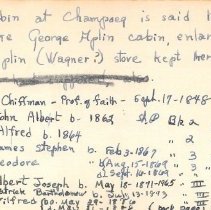 bin at Champoeg is said t
re George Aplin cabin, enlar
plin (Wagner?) stove kept her
Chiffman - Prof. of faith - Sept. 17-1848
John Albert b - 1863 SP Bk 2
Alfred b. 1864 " "
James Stephen b. Feb 3-1867 " 3
eodore b Aug. 15-1869 " 3
d Sept. 16-1869 " 3
lbert Joseph b. May 18-1871-1965 " III
atrick Bartholomew b. July 13-1873 " III
ilfred b. May 29-1880